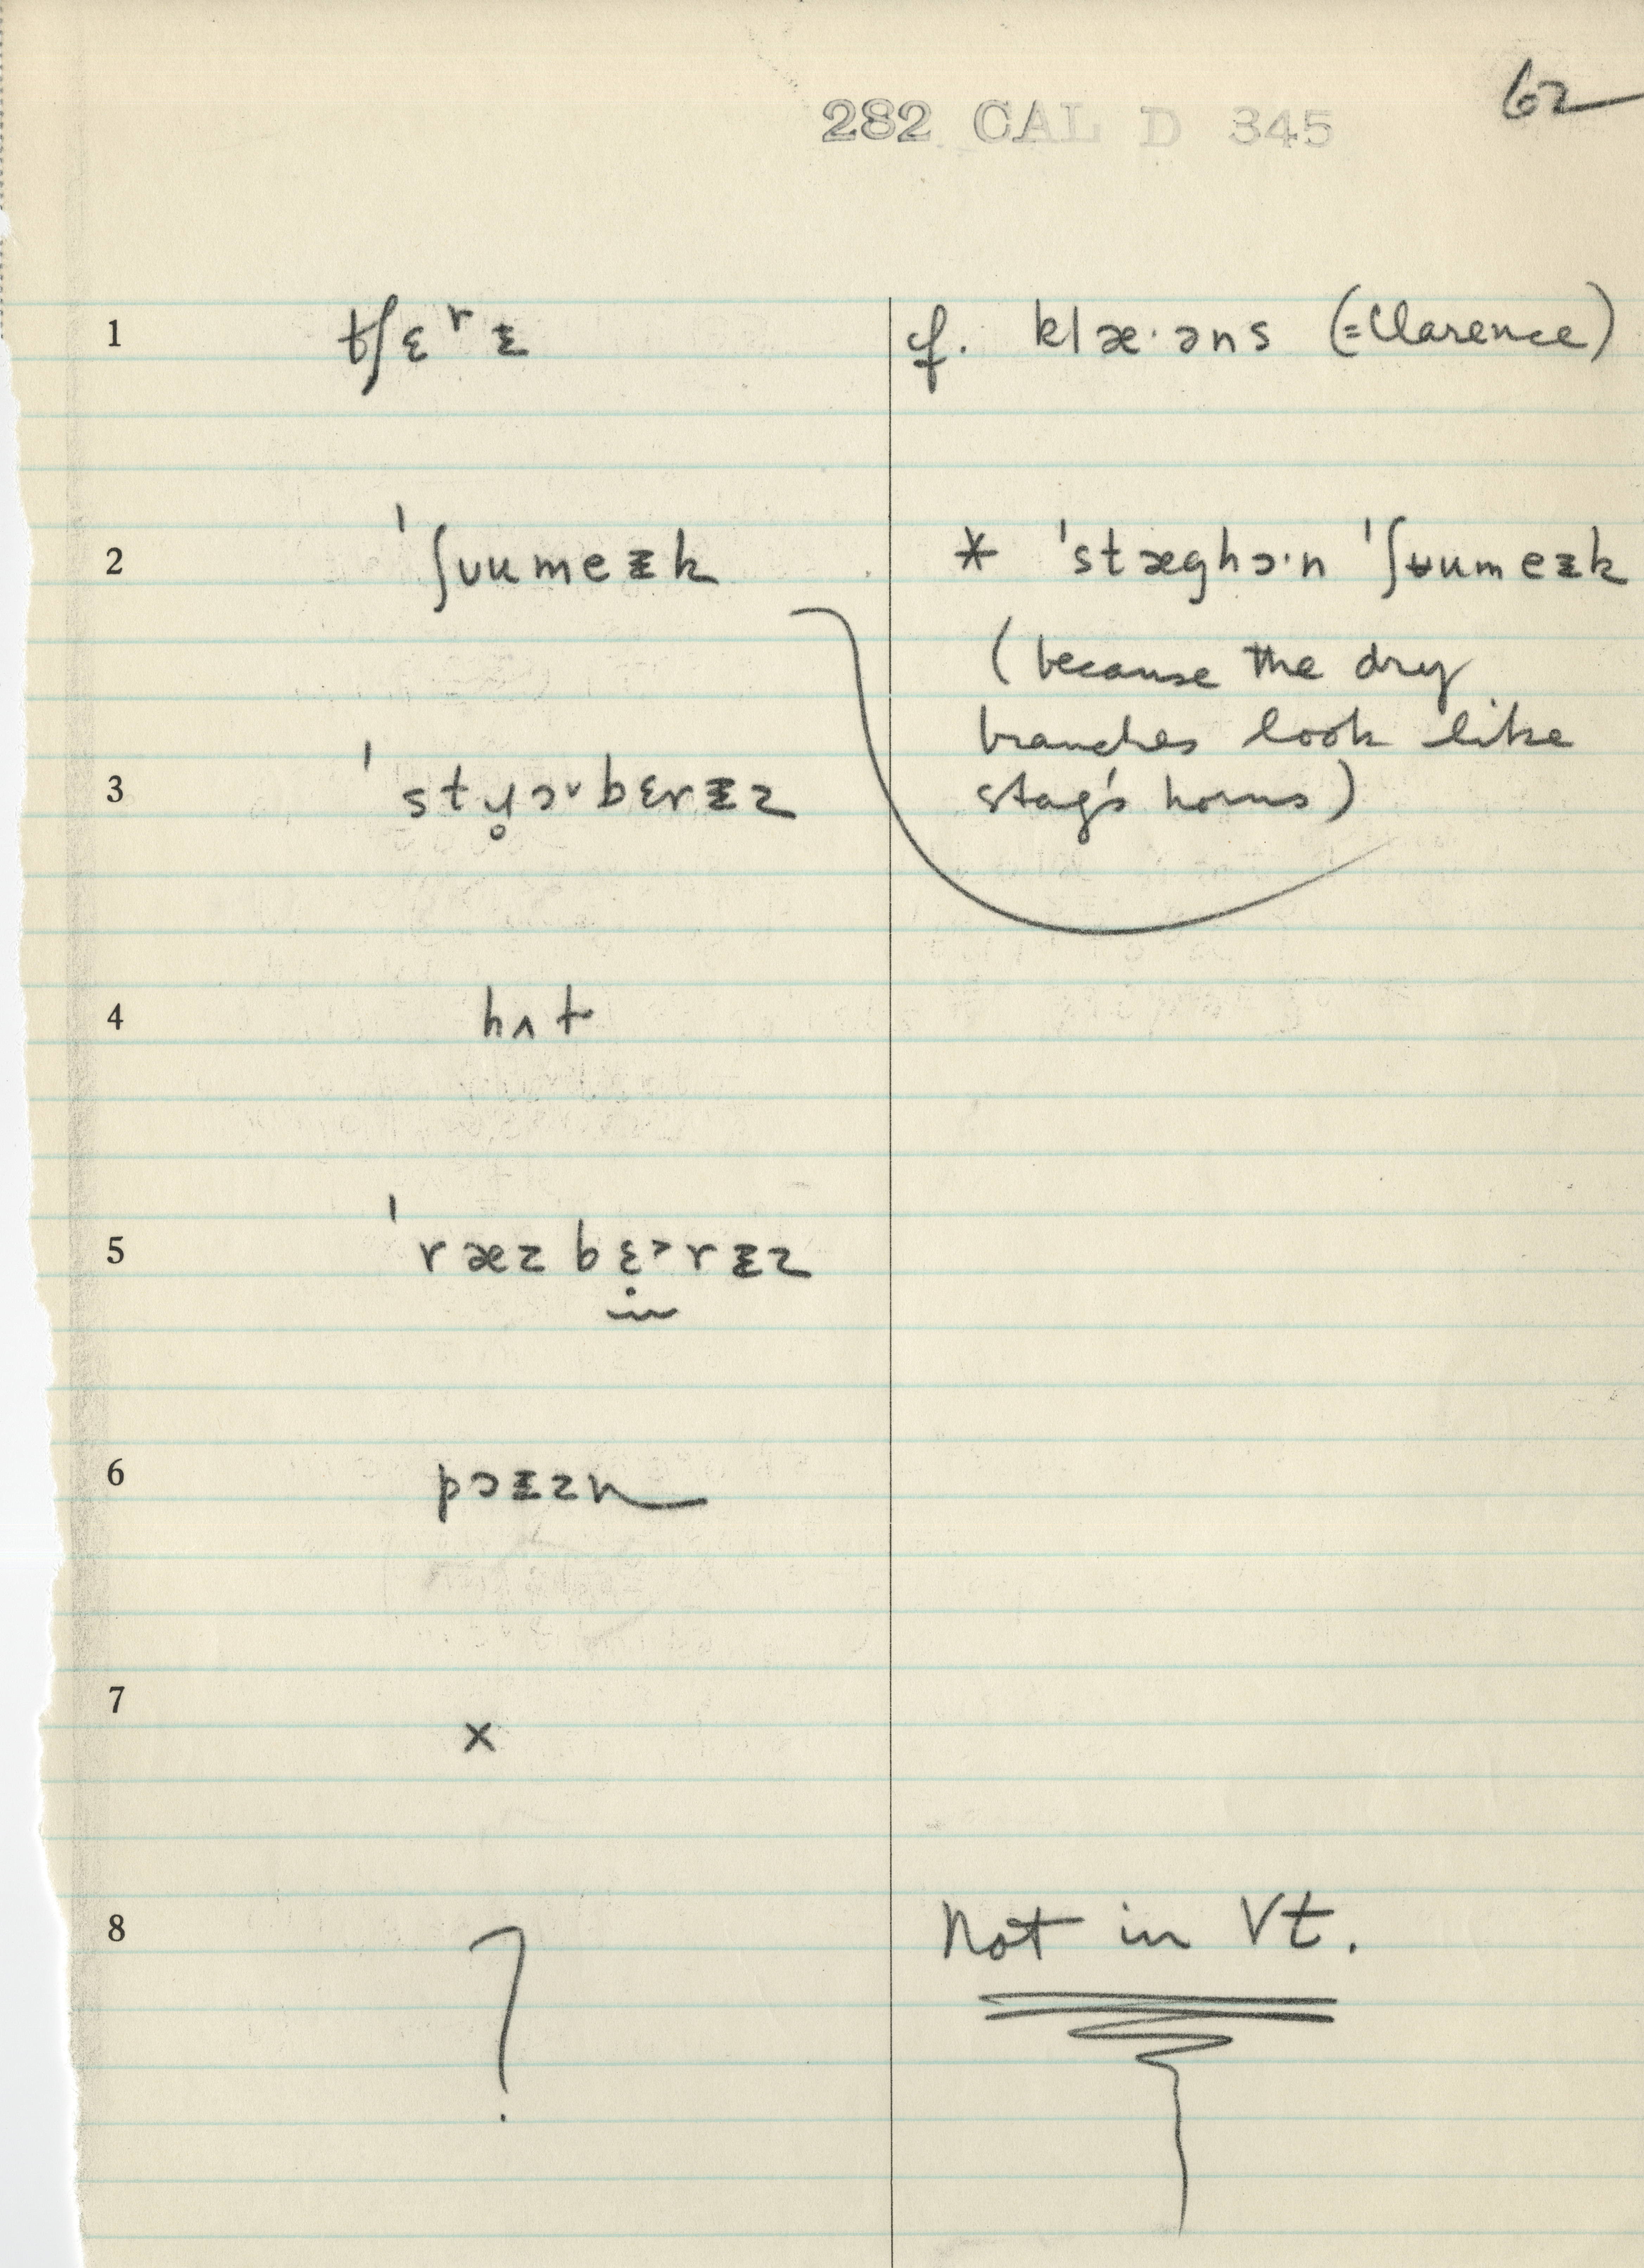 62
282 CAL D 345
1 tʃɛʳᵻ cf. klæ·əns (=Clarence)
2 ˈʃᴜumeᵻk * ˈstæghɔ·n ˈʃʉumeᵻk
(because the dry
branches look like
3 ˈstɥ̥ɔᵛbɛrᵻz stag's horns)
4 hʌt
5 ˈræzbɛ˃rᵻz
6 pɔᵻzn
7 x
8 ? Not in Vt.